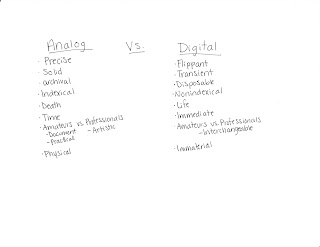 Analog Vs. Digital
· Precise
· Solid
· archival
· Indexical
· Death
· Time
· Amateurs vs Professionals
- Document - Artistic
- Practical
· Physical
· Flippant
· Transient
· Disposable
· Nonindexical
· Life
· Immediate
Amateurs vs. Professionals
- Interchangeable
· Immaterial